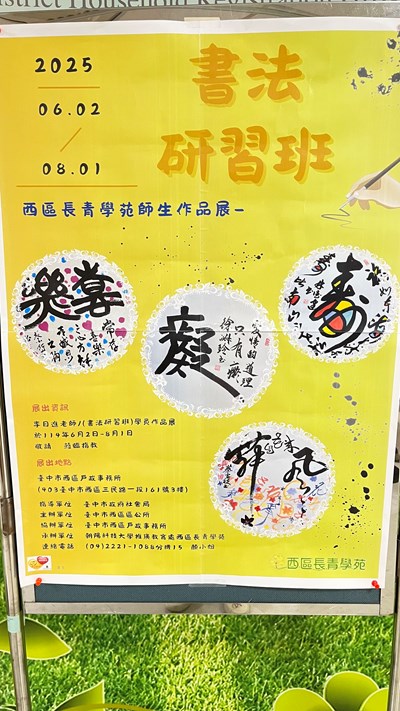 District Household Registration
2025
06.02
08.01
書法
研習班
西區長青學苑師生作品展
壽
展出資訊
李日進老師/(書法研習班)學員作品展
於114年6月2日-8月1日
敬請 蒞臨指教
展出地點
臺中市西區戶政事務所
(403臺中市西區三民路一段161號3樓)
指導單位 臺中市政府社會局
主辦單位 臺中市西區區公所
協辦單位 臺中市西區戶政事務所
承辦單位 朝陽科技大學推廣教育處西區長青學苑
連絡電話 (04)2221-1088分機15 顏小姐
西區長青學苑